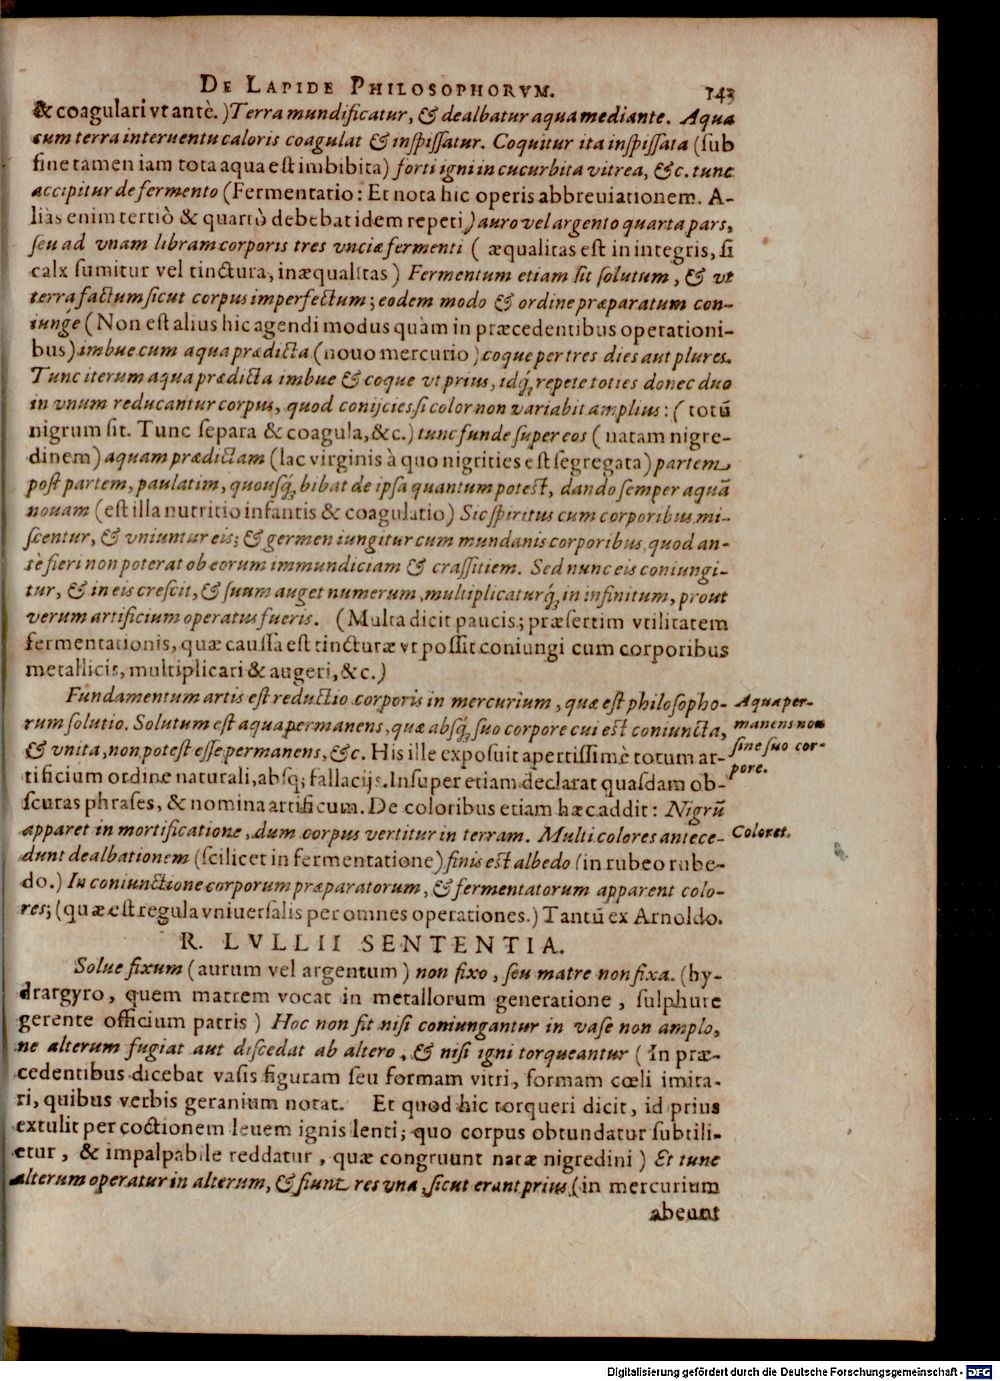 DE LAPIDE PHILOSOPHORVM. 143
& coagulari vt antè.) Terra mundificatur, & dealbatur aqua mediante. Aqua
cum terra interuentu caloris coagulat & inspissatur. Coquitur ita inspissata (sub
fine tamen iam tota aqua est imbibita) forti igni in cucurbita vitrea, &c. tunc
accipitur de fermento (Fermentatio: Et nota hic operis abbreuiationem. A-
liàs enim tertiò & quartò debebat idem repeti) auro vel argento quarta pars,
seu ad vnam libram corporis tres vnciæ fermenti ( æqualitas est in integris, si
calx sumitur vel tinctura, inæqualitas) Fermentum etiam sit solutum, & vt
terra factum sicut corpus imperfectum; eodem modo & ordine præparatum con-
iunge (Non est alius hic agendi modus quàm in præcedentibus operationi-
bus) imbue cum aqua prædicta (nouo mercurio) coque per tres dies aut plures.
Tunc iterum aqua prædicta imbue & coque vt prius, idq́; repete toties donec duo
in vnum reducantur corpus, quod conijcies si color non variabit amplius: ( totũ
nigrum sit. Tunc separa & coagula, &c.) tunc funde super eos ( natam nigre-
dinem) aquam prædictam (lac virginis à quo nigrities est segregata) partem
post partem, paulatim, quousq́; bibat de ipsa quantum potest, dando semper aquã
nouam (est illa nutritio infantis & coagulatio) Sic spiritus cum corporibus mi-
scentur, & vniuntur eis; & germen iungitur cum mundanis corporibus, quod an-
tè fieri non poterat ob eorum immundiciam & crassitiem. Sed nunc eis coniungi-
tur, & in eis crescit, & suum auget numerum, multiplicaturq́; in infinitum, prout
verum artificium operatus fueris. (Multa dicit paucis; præsertim vtilitatem
fermentationis, quæ caussa est tincturæ vt possit coniungi cum corporibus
metallicis, multiplicari & augeri, &c.)
Fundamentum artis est reductio corporis in mercurium, quæ est philosopho-
rum solutio. Solutum est aqua permanens, quæ absq́; suo corpore cui est coniuncta,
& vnita, non potest esse permanens, &c. His ille exposuit apertissimè totum ar-
tificium ordine naturali, absq; fallacijs. Insuper etiam declarat quasdam ob-
scuras phrases, & nomina artificum. De coloribus etiam hæc addit: Nigrũ
apparet in mortificatione, dum corpus vertitur in terram. Multi colores antece-
dunt dealbationem (scilicet in fermentatione) finis est albedo (in rubeo rube-
do.) In coniunctione corporum præparatorum, & fermentatorum apparent colo-
res; (quæ est regula vniuersalis per omnes operationes.) Tantũ ex Arnoldo.
Aqua per-
manens non
sine suo cor-
pore.
Colores.
R. LVLLII SENTENTIA.
Solue fixum (aurum vel argentum) non fixo, seu matre non fixa. (hy-
drargyro, quem matrem vocat in metallorum generatione, sulphure
gerente officium patris) Hoc non fit nisi coniungantur in vase non amplo,
ne alterum fugiat aut discedat ab altero, & nisi igni torqueantur ( In præ-
cedentibus dicebat vasis figuram seu formam vitri, formam cœli imita-
ri, quibus verbis geranium notat. Et quod hic torqueri dicit, id prius
extulit per coctionem leuem ignis lenti; quo corpus obtundatur subtili-
etur, & impalpabile reddatur, quæ congruunt natæ nigredini) Et tunc
alterum operatur in alterum, & fiunt res vna, sicut erant prius (in mercurium
abeunt
Digitalisierung gefördert durch die Deutsche Forschungsgemeinschaft - DFG